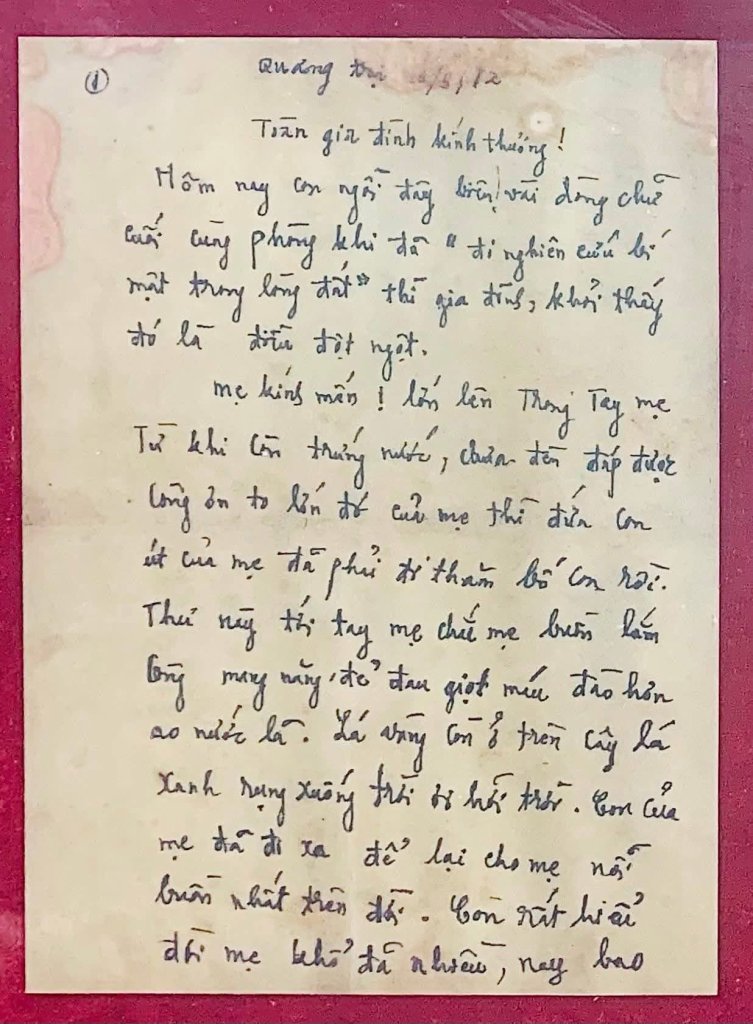 ①
Quảng trị /9/72
Toàn gia đình kính thương!
Hôm nay con ngồi đây biên vài dòng chữ
cuối cùng phòng khi đã "đi nghiên cứu bí
mật trong lòng đất" thì gia đình, khỏi thấy
đó là điều đột ngột.
Mẹ kính mến! lớn lên Trong Tay mẹ
Từ khi còn trứng nước, chưa đền đáp được
Công ơn to lớn đó của mẹ thì đứa con
út của mẹ đã phải đi thăm bố con rồi.
Thư này tới tay mẹ chắc mẹ buồn lắm
Công mang nặng, đẻ đau giọt máu đào hơn
ao nước lã. Lá vàng còn ở trên cây lá
xanh rụng xuống trời ơi hỡi trời. Con của
mẹ đã đi xa để lại cho mẹ nỗi
buồn nhất trên đời. Con rất hiểu
đời mẹ khổ đã nhiều, nay bao